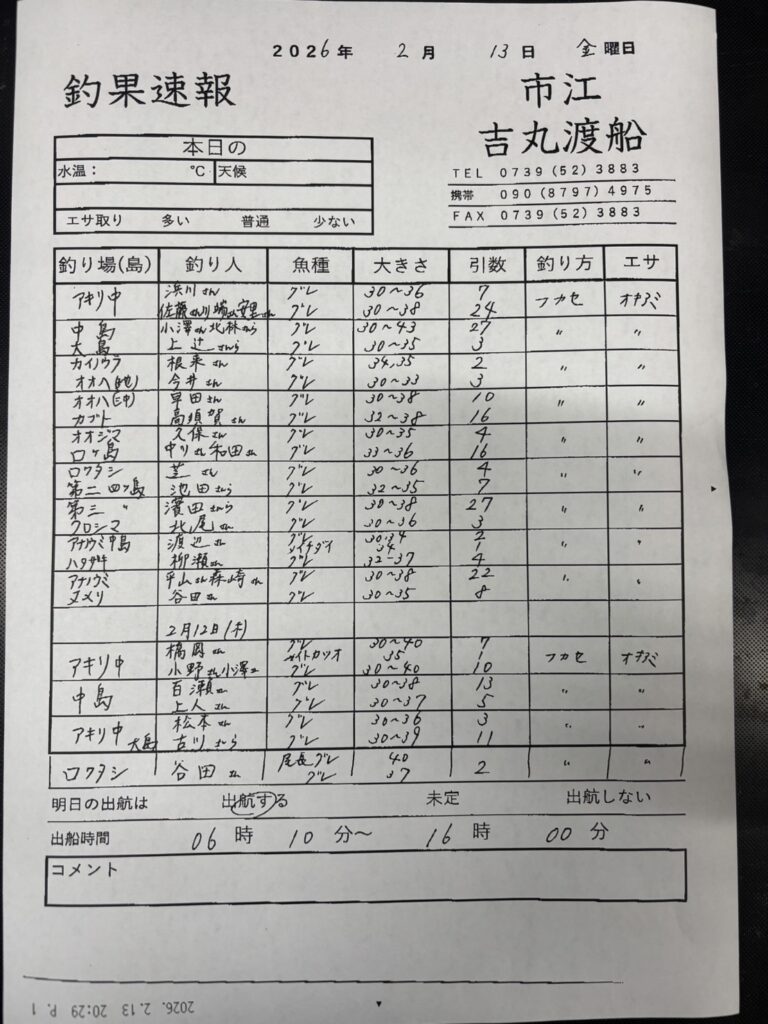 2026年 2月 13日 金曜日
釣果速報
市江
吉丸渡船
TEL 0739(52)3883
携帯 090(8797)4975
FAX 0739(52)3883
本日の
水温: ℃ 天候
エサ取り 多い 普通 少ない
釣り場(島) 釣り人 魚種 大きさ 引数 釣り方 エサ
アキリ中 浜川さん グレ 30~36 7 フカセ オキアミ
佐藤さん川端さん安里さん グレ 30~38 24
中島 小澤さん北林さんら グレ 30~43 27 〃 〃
大島 上辻さんら グレ 30~35 3
カイノウラ 根来さん グレ 34,35 2 〃 〃
オオハ(地) 今井さん グレ 30~33 3
オオハ(沖) 早田さん グレ 30~38 10 〃 〃
カブト 高須賀さん グレ 32~38 16
オオジマ 久保さん グレ 30~35 4 〃 〃
ロヶ島 中りさん和田さん グレ 33~36 16
ロクタシ 芝さん グレ 30~36 4 〃 〃
第二四ツ島 池田さんら グレ 32~35 7
第三 〃 濱田さんら グレ 30~38 27 〃 〃
クロシマ 北尾さん グレ 30~36 3
アナウミ中島 渡辺さん グレ 30,34 2 〃 〃
メイチダイ 34 1
ハタザキ 柳瀬さん グレ 32-37 4
アナノウミ 平山さん森崎さん グレ 30~38 22 〃 〃
ヌメリ 谷田さん グレ 30~35 8
2月12日(木)
アキリ中 橋岡さん グレ 30~40 7 フカセ オキアミ
メイトカツオ 35 1
小野さん小澤さん グレ 30~40 10
中島 百瀬さん グレ 30~38 13 〃 〃
上人さん グレ 30~37 5
アキリ中 松本さん グレ 30~36 3 〃 〃
大島 古川さんら グレ 30~39 11
ロクタシ 谷田さん 尾長グレ 40 2 〃 〃
グレ 37
明日の出航は 出航する 未定 出航しない
出船時間 06時 10分~ 16時 00分
コメント
2026. 2.13 20:29 P. 1